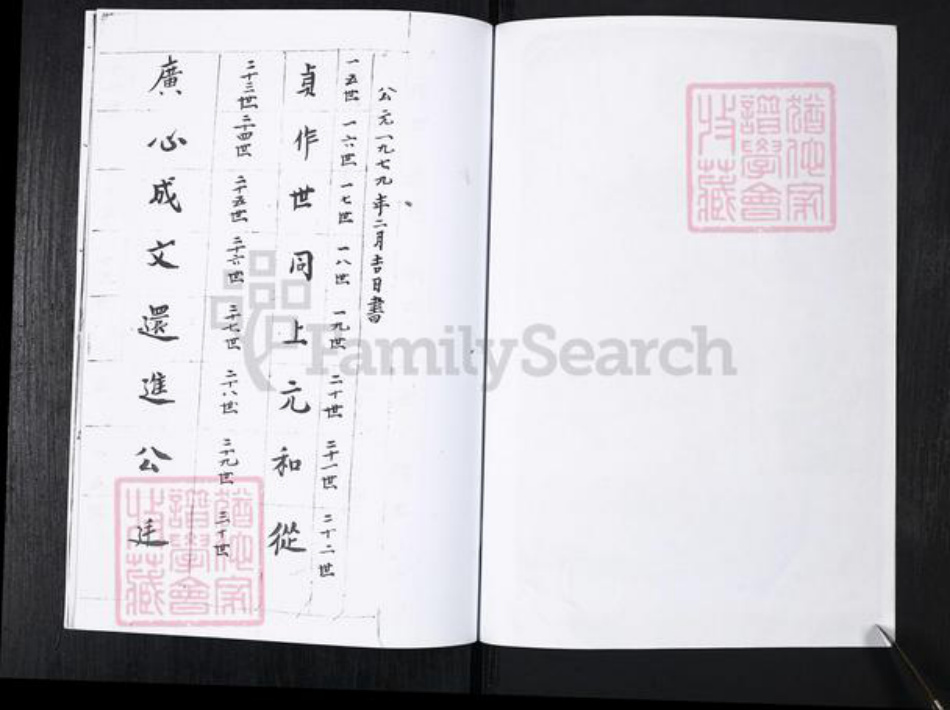 公元一九七九年二月吉日書
一五世 一六世 一七世 一八世 一九世 二十世 二十一世 二十二世
貞作世同上元和從
二十三世 二十四世 二十五世 二十六世 二十七世 二十八世 二十九世 三十世
廣心成文還進公廷
譜學會
收藏
譜學會
收藏
FamilySearch